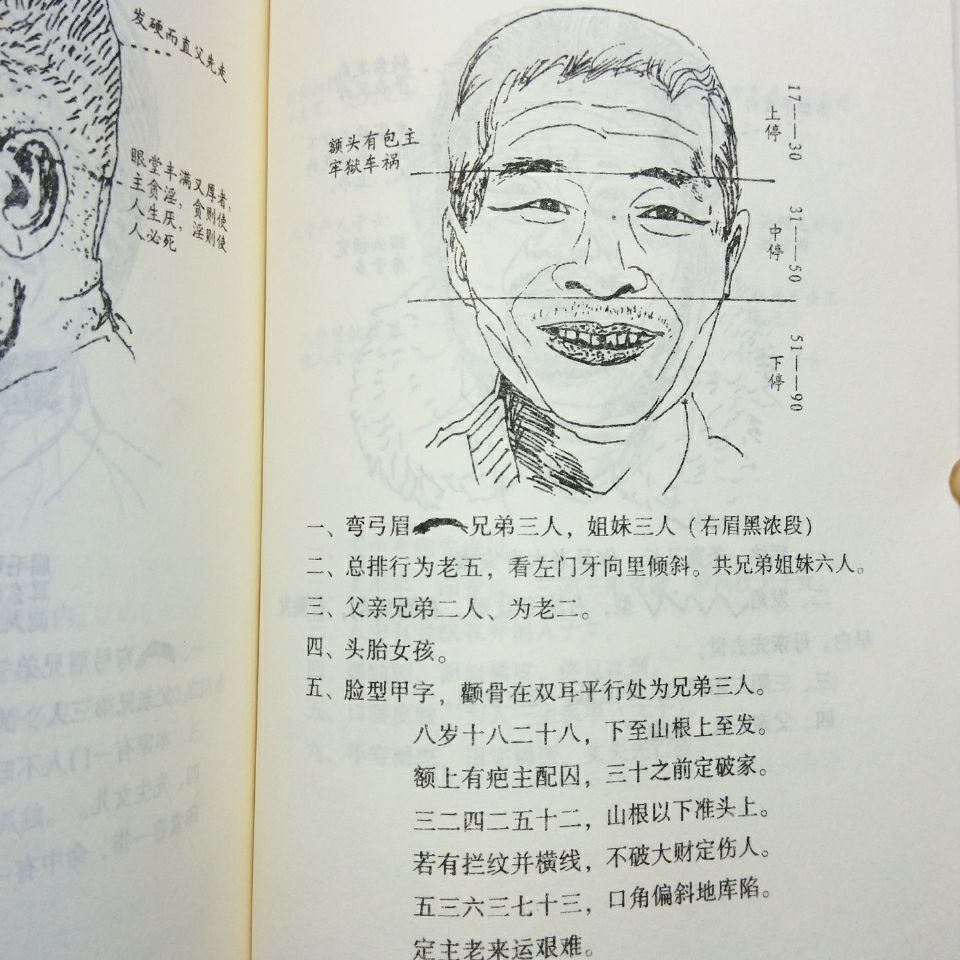 发硬而直父先走
眼堂丰满又厚者,
主贪淫,贪则使
人生厌,淫则使
人必死
额头有包主
牢狱车祸
17——30
上停
31——50
中停
51——90
下停
一、弯弓眉 兄弟三人,姐妹三人(右眉黑浓段)
二、总排行为老五,看左门牙向里倾斜。共兄弟姐妹六人。
三、父亲兄弟二人、为老二。
四、头胎女孩。
五、脸型甲字,颧骨在双耳平行处为兄弟三人。
八岁十八二十八,下至山根上至发。
额上有疤主配囚,三十之前定破家。
三二四二五十二,山根以下准头上。
若有拦纹并横线,不破大财定伤人。
五三六三七十三,口角偏斜地库陷。
定主老来运艰难。